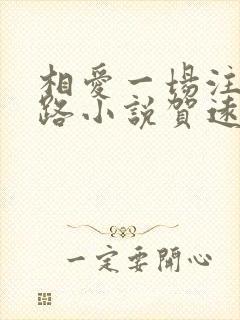 相愛一場注
路小說賀遠
一定要開心